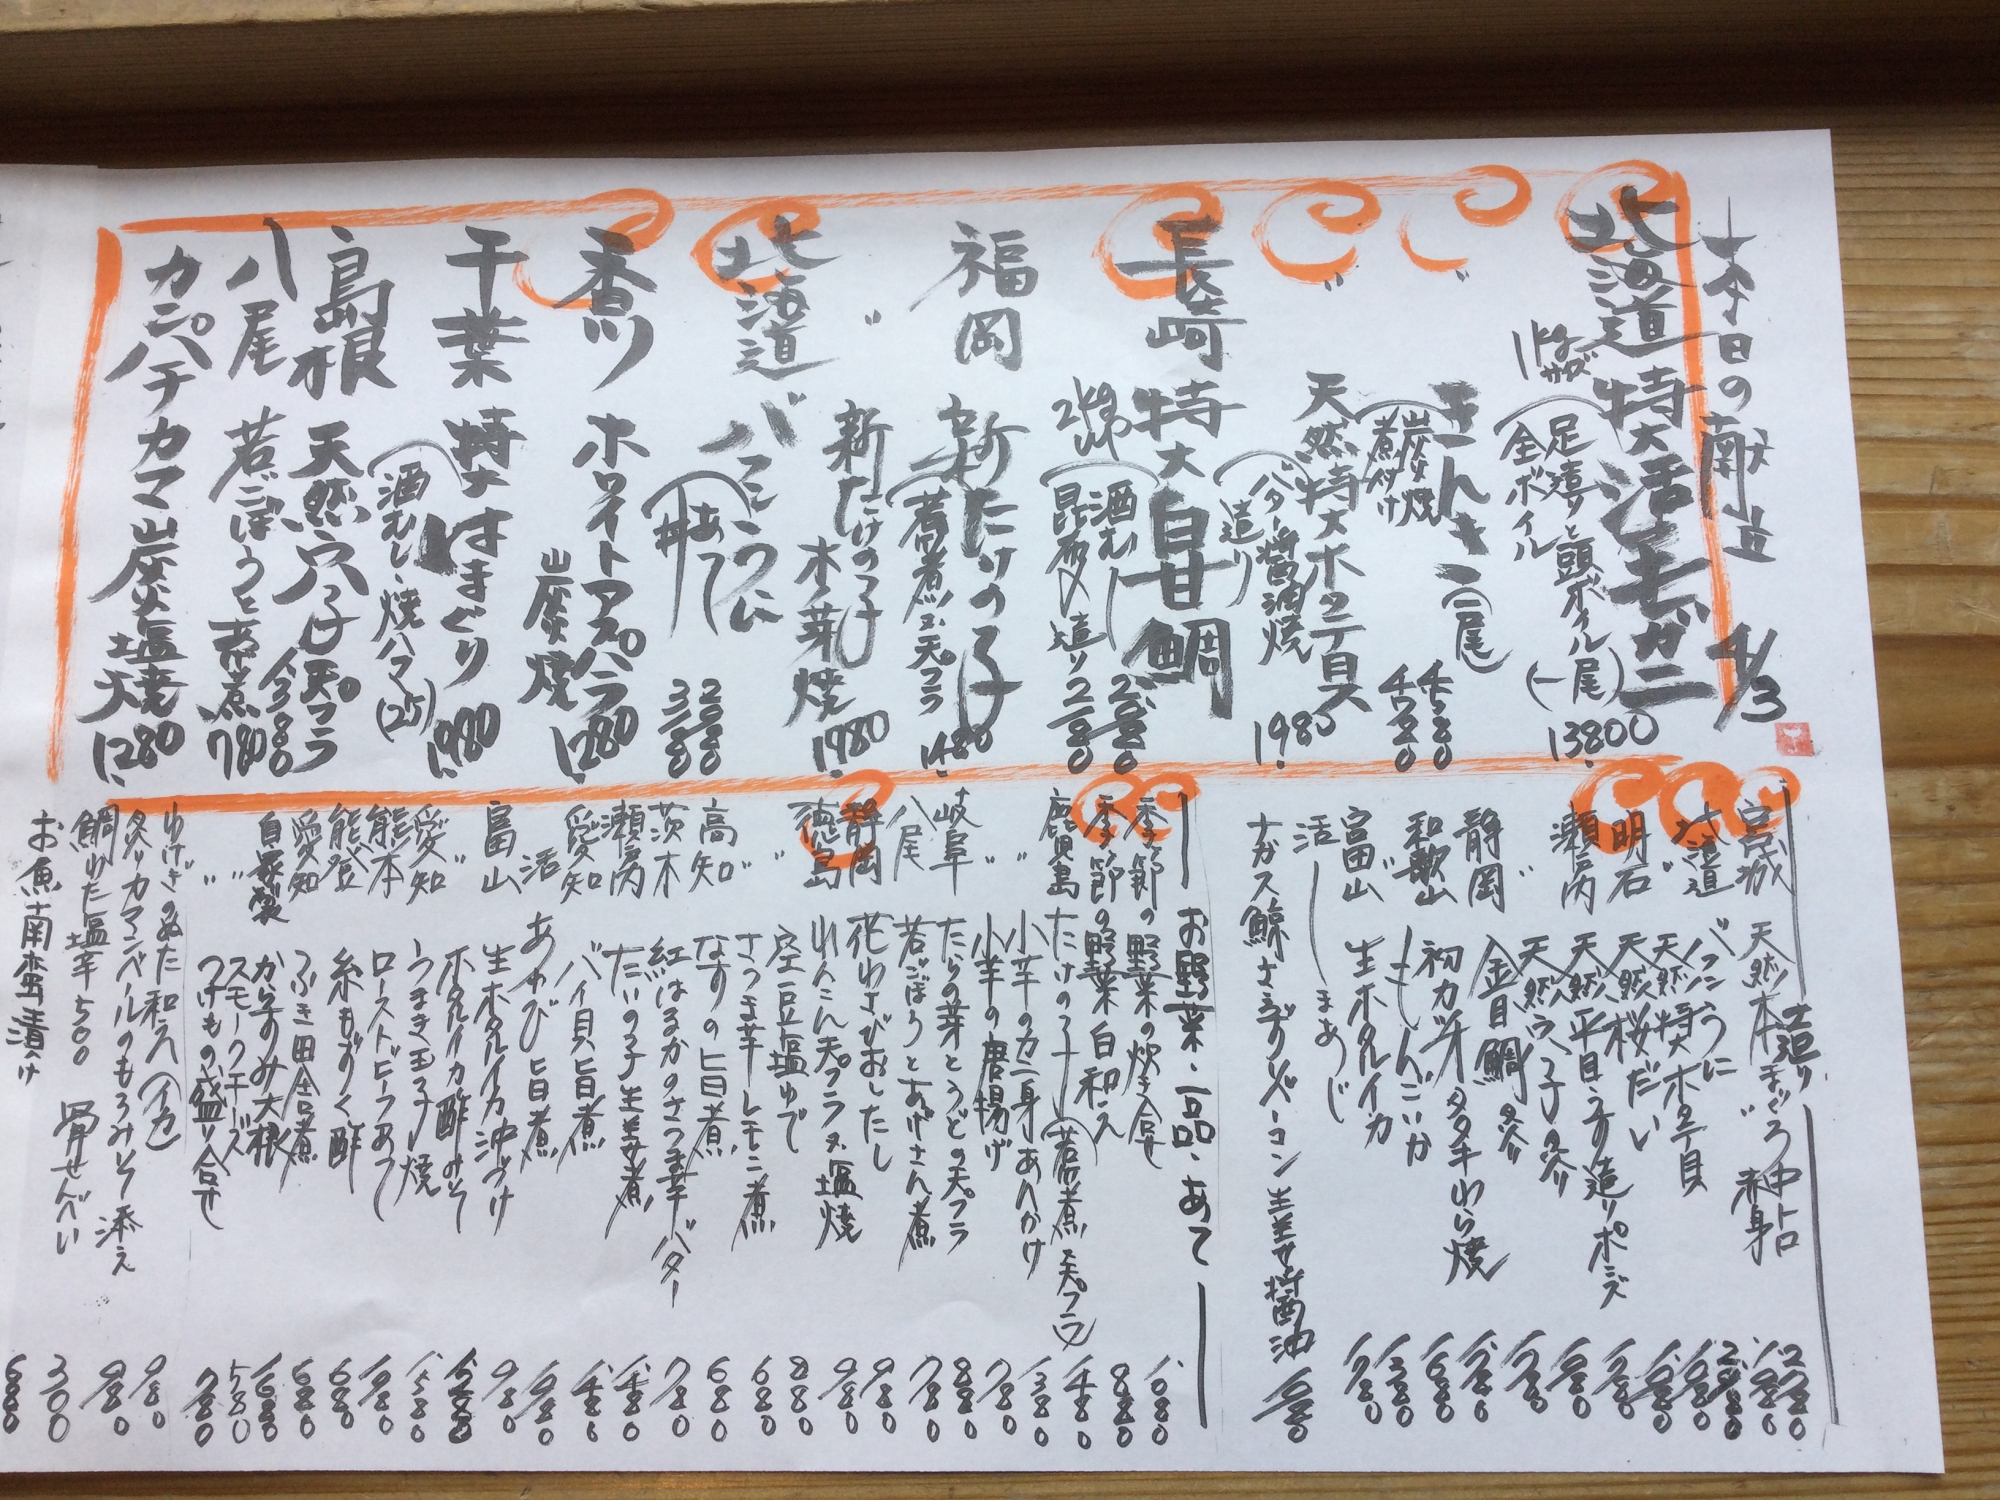 本日の献立 4/3
北海道 特大活毛ガニ
1kgサイズ
足造りと頭ボイル(一尾) 13800
全ボイル
〃 きんき(一尾)
炭火焼 4580
煮付け 4780
〃 天然特大ホタテ貝
バター醤油焼 1980
造り
長崎 特大白甘鯛
2kgUP
酒むし 2580
昆布〆造り 2180
福岡 新たけの子
若煮 天プラ 1480
〃 新たけの子
木ノ芽焼 1980
北海道 バフンうに
あて 2080
丼 3180
香川 ホワイトアスパラ
炭火焼 1280
千葉 特大はまぐり
酒むし、焼ハマ(2ケ) 1980
島根 天然穴子天プラ 1380
八尾 若ごぼうとあげ煮 780
カンパチカマ炭火塩焼 1280
造り
宮城 天然本まぐろ中トロ 2780
〃 赤身 1980
北海道 バフンうに
〃 天然特大ホタテ貝
明石 天然桜だい
瀬戸内 天然平目うす造りポンズ
〃 天然穴子の炙り
静岡 金目鯛炙り
〃 初カツオタタキわら焼
和歌山 もんごいか
富山 生ホタルイカ
活 まあじ
ナガス鯨さえずりベーコン 生姜醤油
お野菜・一品・あて
季節の野菜の炊き合せ
季節の野菜白和え 880
鹿児島 たけの子(若煮 天プラ) 1480
〃 小芋のカニ身あんかけ 1380
〃 小芋の唐揚げ 780
岐阜 たらの芽とうどの天プラ 880
八尾 若ごぼうとあげさん煮 780
静岡 花わさびおしたし 980
徳島 れんこん天プラ又塩焼 980
〃 空豆塩ゆで 880
〃 さつま芋レモン煮 680
高知 なすの旨煮 680
茨木 紅はるかのさつま芋バター 780
瀬戸内 たいの子生姜煮
愛知 バイ貝旨煮
活 あわび旨煮
富山 生ホタルイカ沖づけ 980
〃 ホタルイカ酢みそ
愛知 うまき玉子焼
熊本 ローストビーフあて
能登 糸もずく酢 680
愛知 ふき田舎煮 680
自家製 からすみ大根 1680
〃 スモークチーズ 580
〃 つけもの盛り合せ 780
ゆげぎのぬた和え(イカ) 980
炙りカマンベールのもろみそ添え 980
鯛わた塩辛500 骨せんべい 300
お魚南蛮漬け 680